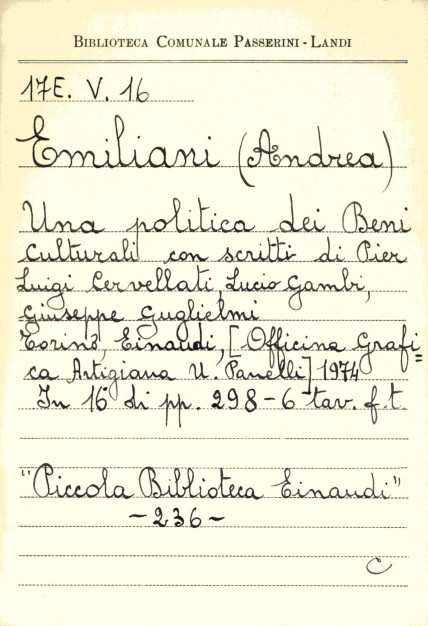 BIBLIOTECA COMUNALE PASSERINI-LANDI
17E. V. 16
Emiliani (Andrea)
Una politica dei Beni
Culturali con scritti di Pier
Luigi Cervellati, Lucio Gambi,
Giuseppe Guglielmi
Torino, Einaudi, [Officina Grafi=
ca Artigiana U. Panelli] 1974
In 16° di pp. 298-6 tav. f.t.
"Piccola Biblioteca Einaudi"
-236-
C